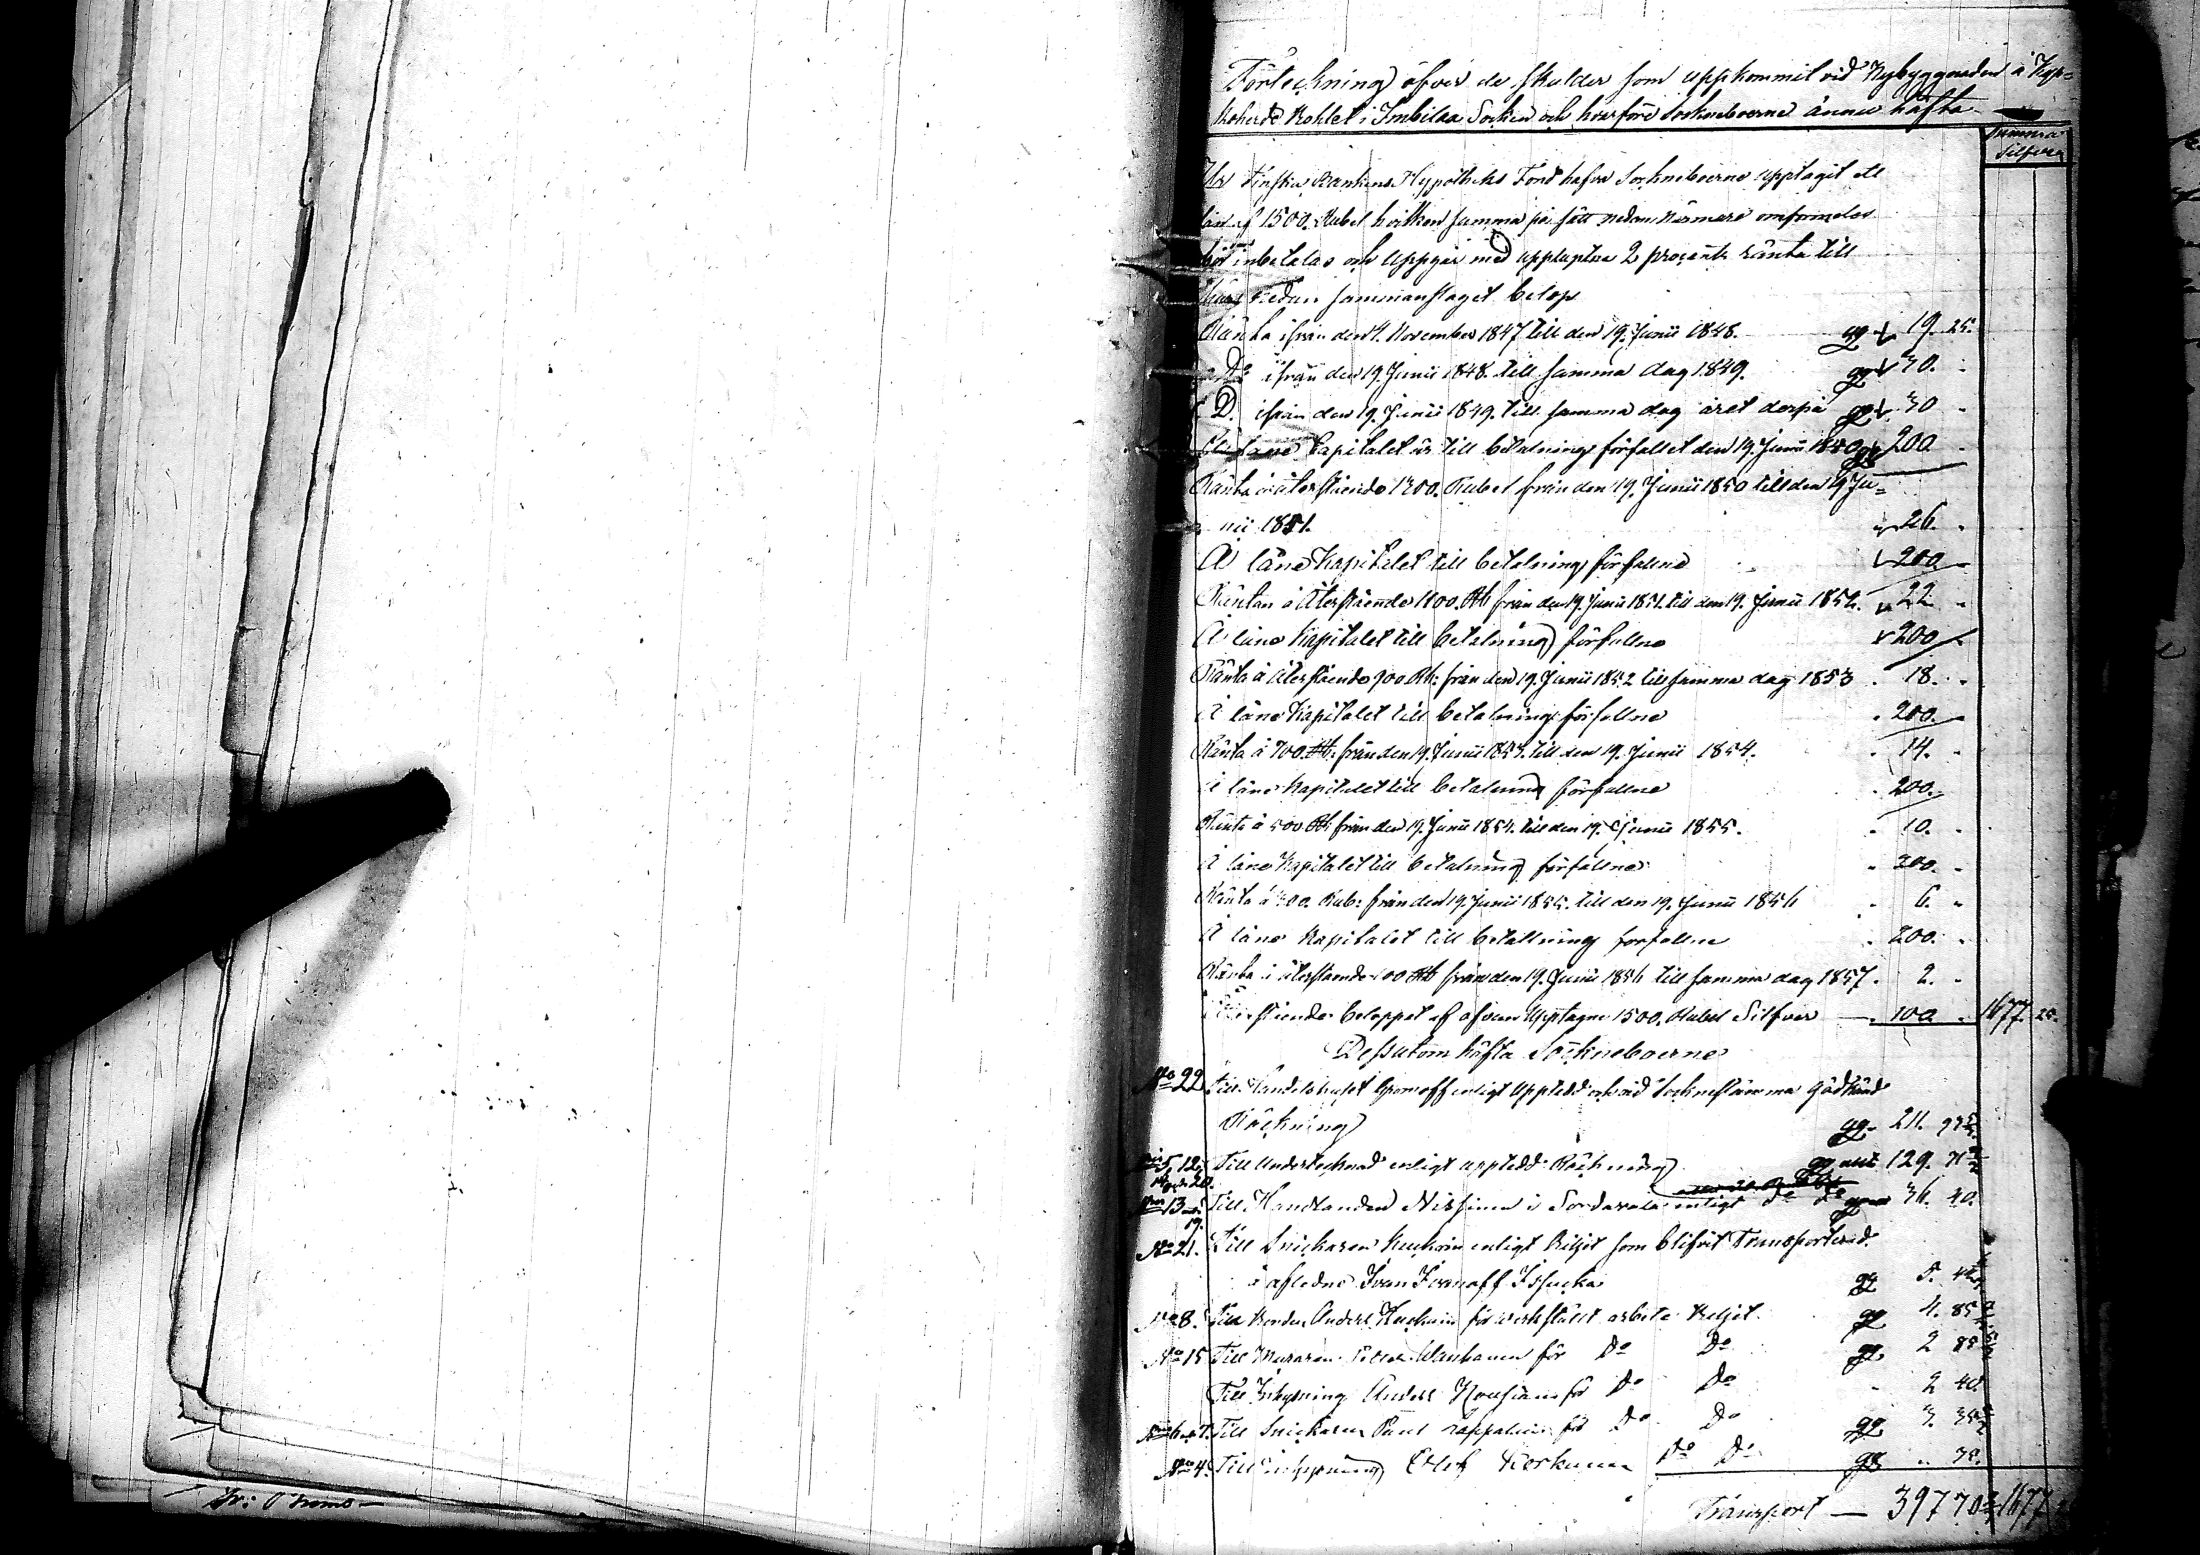 Förteckning öfver de skulder som uppkommit vid Nybyggnaden å Kap=
Bohlet i Imbilax Socken och hvarföre Sockneboerne ännu häfta
Summa
Silfver
Ur Finska Bankens Hypotheks Fond hafva Sockneboerne upptagit ett
lån af 1500. Rubel hvilken summa på sätt nedan närmare omformeles
bör inbetalas och uppgår med upplupne 2 procents ränta till
nedan sammanslaget belop
Ränta ifrån den 4. November 1847 till den 19. Junii 1848. 19. 25.
Do ifrån den 19. Junii 1848. till samma dag 1849. 30. -
D. ifrån den 19. Junii 1849. till samma dag året derpå 30 -
Capitalet är till betalning förfallet den 19. Junii 200 -
Ränta å återstående 1300. Rubel från den 19. Junii 1850 till den 19 Ju=
nii 1851. 26. -
Å låne Kapitalet till betalning förfallne 200 -
Räntan å återstående 1100. Rb från den 19. Junii 1851. till den 19. Junii 1852. 22 -
Å låne Kapitalet till betalning förfallne 200 -
Ränta å återstående 900 Rb: från den 19. Junii 1852 till samma dag 1853 . 18. -
Å låne Kapitalet till betalning förfallne . 200. -
Ränta å 700. Rb: från den 19. Junii 1853. till den 19. Junii 1854. . 14. -
Å låne Kapitalet till betalning förfallne . 200. -
Ränta å 500 Rb från den 19. Junii 1854. till den 19. Junii 1855. . 10. -
Å låne Kapitalet till betalning förfallne - 200. -
Ränta å 300. Rub: från den 19. Junii 1855. till den 19. Junii 1856 . 6. -
Å låne Kapitalet till betallning förfallne . 200. -
Ränta å återstående 100 Rb från den 19. Junii 1856 till samma dag 1857. 2. -
Återstående beloppet af ofvan upptagne 1500. Rubel Silfver — 100 . 1677. 25.
Dessutom häfta Sockneboerne
No 22. Till Handelshuset enligt upptedd och vid Sockneståmma Godkänd
Räckning 211.
12. Till Undertecknad enligt upptedd Räckning 129.
20.
13 Till Handlanden Nissinen i Sordavala enligt Do Do 36. 40.
19.
No 21. Till Snickaren enligt Beljet som blifvit Transporterad
å afledne Ivan Ivanoff 5.
No 8. Till Bonden Anders för verkstäldt arbete Beljet 4. 85
No 15 Till Muraren för Do Do 2 85
Till Inhysning Anders för Do Do . 2 40.
Till Snickaren Paul för Do Do 3. 35
No 4. Till Inhysning Olof Do Do
Transport — 397 70 1677